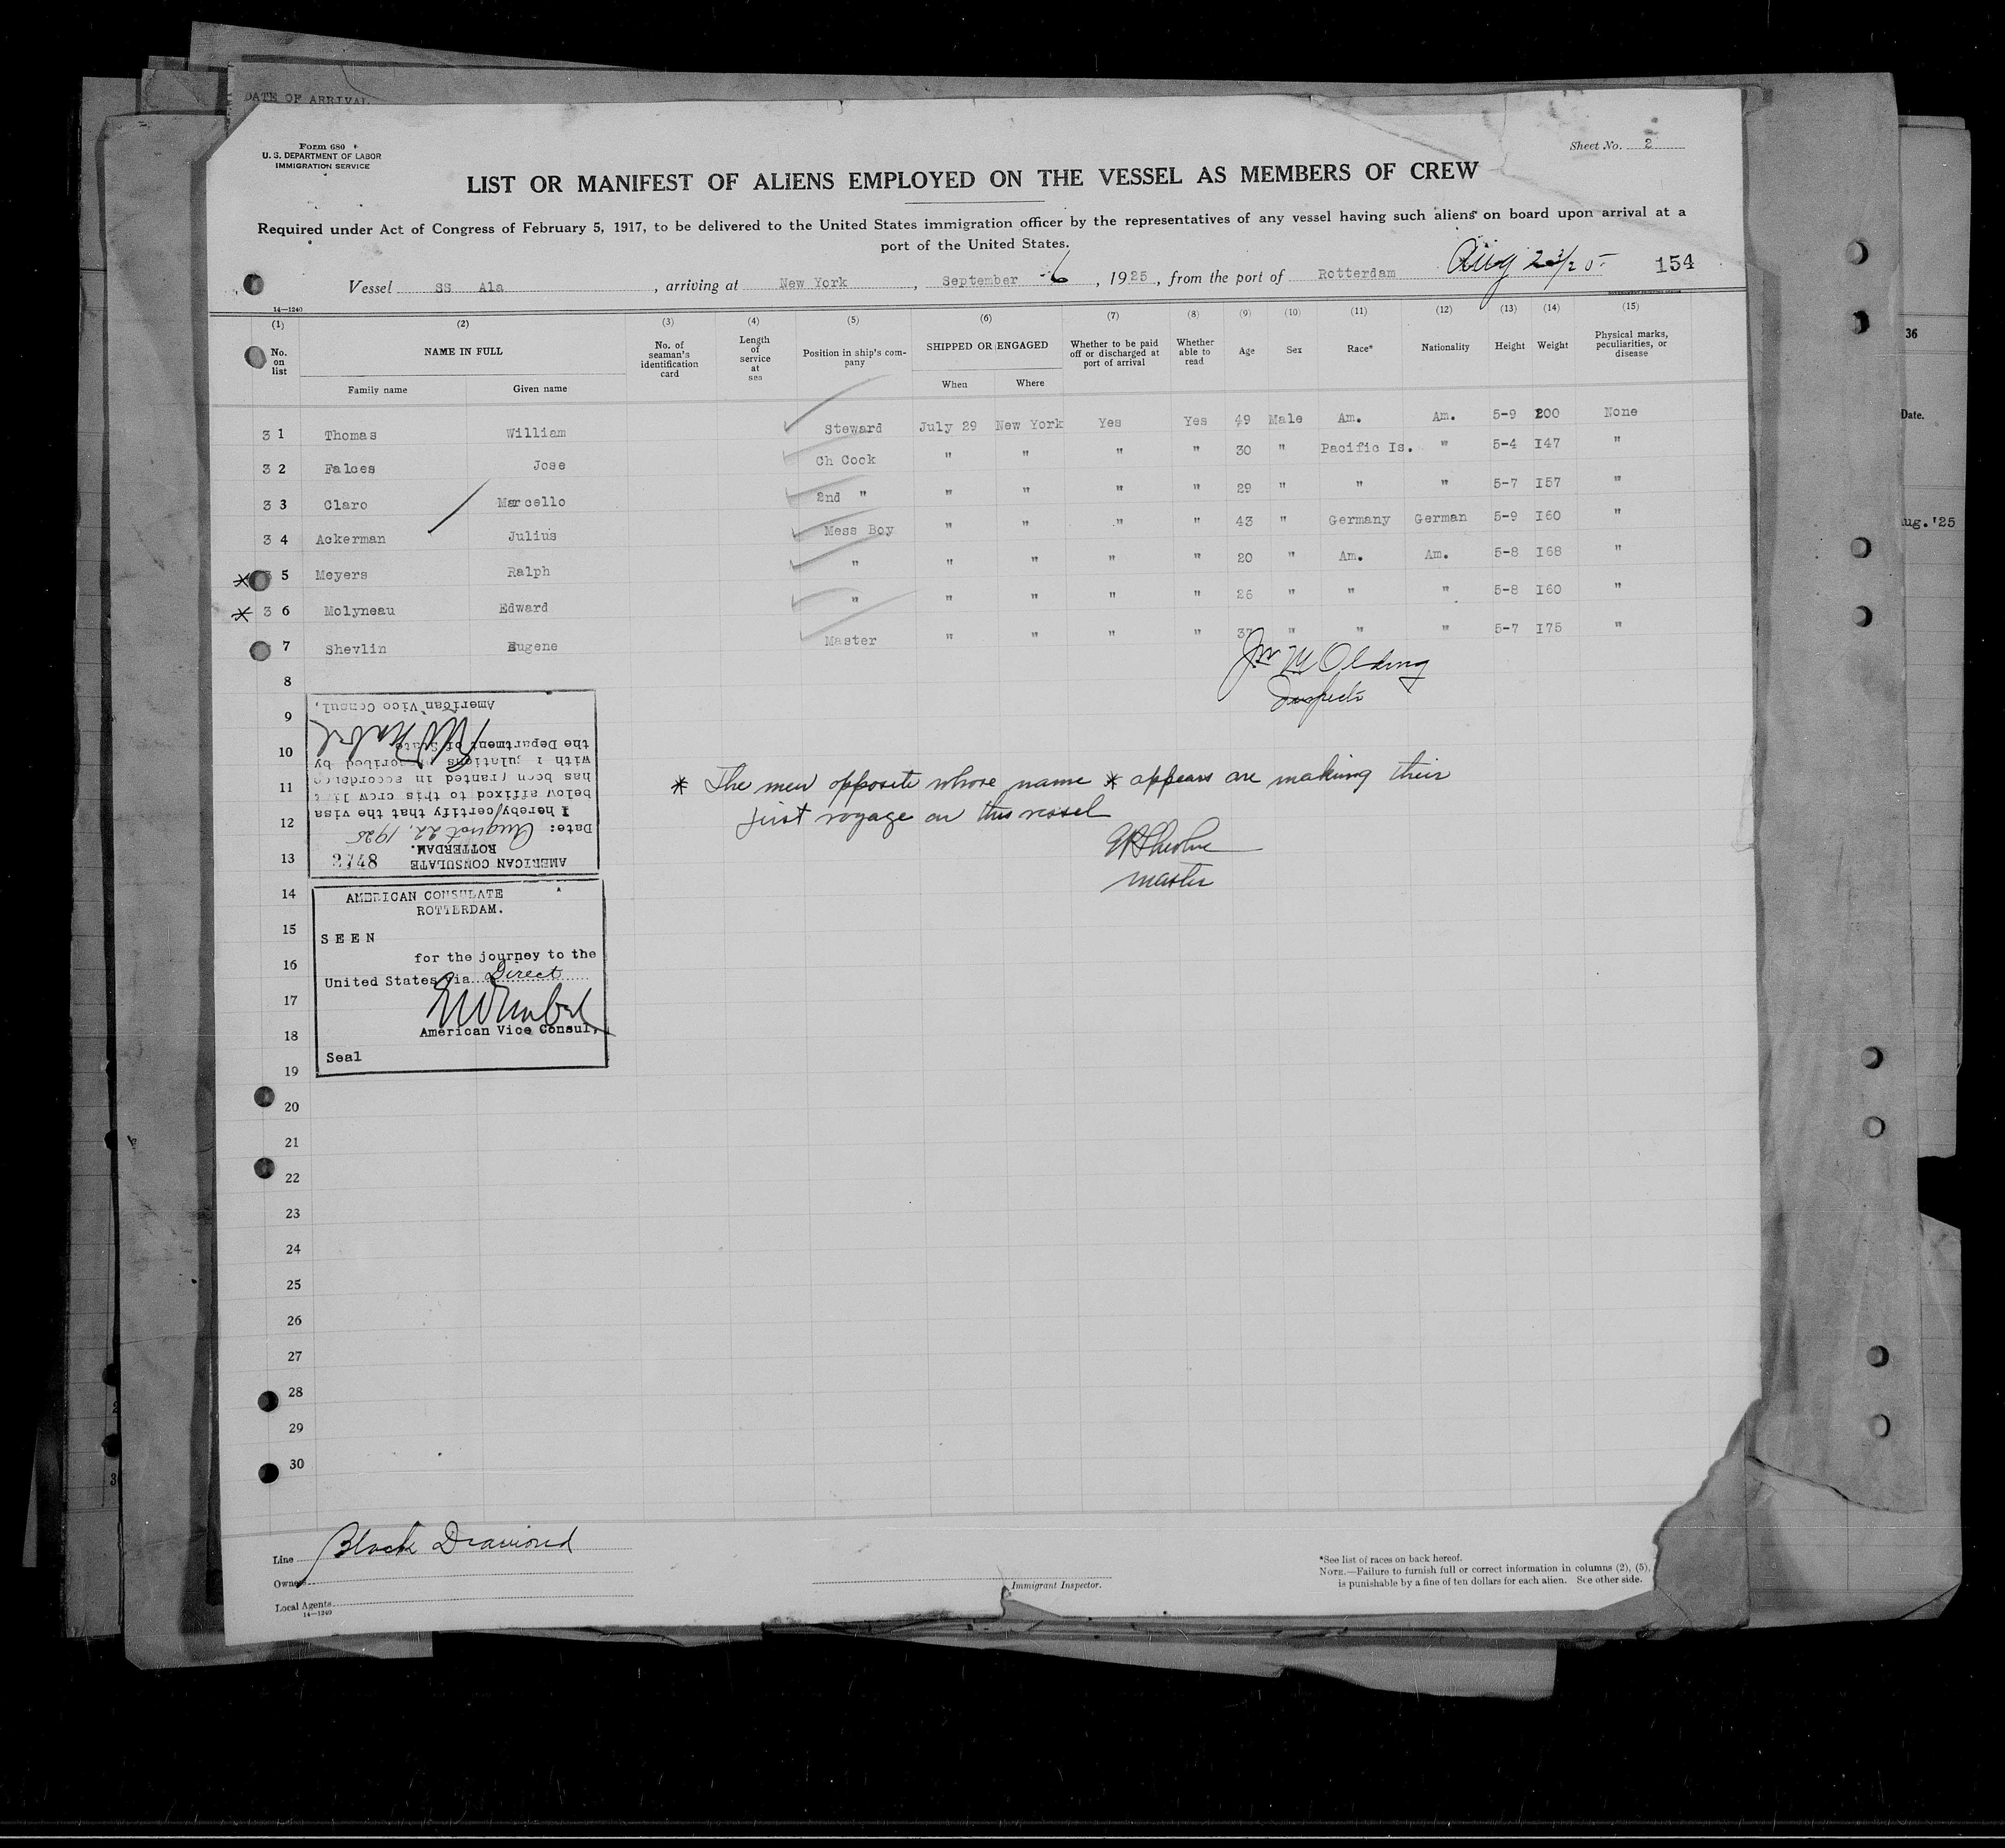 DATE OF ARRIVAL
Form 680
U. S. DEPARTMENT OF LABOR
IMMIGRATION SERVICE
Sheet No. 2
LIST OR MANIFEST OF ALIENS EMPLOYED ON THE VESSEL AS MEMBERS OF CREW
Required under Act of Congress of February 5, 1917, to be delivered to the United States immigration officer by the representatives of any vessel having such aliens on board upon arrival at a
port of the United States.
Vessel SS Ala, arriving at New York, September 6, 1925, from the port of Rotterdam Aug 23/25 154
14—1240
(1) (2) (3) (4) (5) (6) (7) (8) (9) (10) (11) (12) (13) (14) (15)
No. on list NAME IN FULL Family name Given name No. of seaman's identification card Length of service at sea Position in ship's company SHIPPED OR ENGAGED When Where Whether to be paid off or discharged at port of arrival Whether able to read Age Sex Race* Nationality Height Weight Physical marks, peculiarities, or disease
3 1 Thomas William Steward July 29 New York Yes Yes 49 Male Am. Am. 5-9 200 None
3 2 Falces Jose Ch Cook " " " " 30 " Pacific Is. " 5-4 I47 "
3 3 Claro Marcello 2nd " " " " " 29 " " " 5-7 I57 "
3 4 Ackerman Julius Mess Boy " " " " 43 " Germany German 5-9 I60 "
* 3 5 Meyers Ralph " " " " " 20 " Am. Am. 5-8 I68 "
* 3 6 Molyneau Edward " " " " " 26 " " " 5-8 I60 "
7 Shevlin Eugene Master " " " " 37 " " " 5-7 I75 "
8
Jno M Olding
Inspector
9
10
11
12
13
14
15
16
17
18
19
20
21
22
23
24
25
26
27
28
29
30
AMERICAN CONSULATE 2748
ROTTERDAM.
Date: August 22, 1925
I hereby certify that the visa
below affixed to this crew list
has been granted in accordance
with regulations prescribed by
the Department of State
American Vice Consul,
* The men opposite whose name * appears are making their
first voyage on this vessel
master
AMERICAN CONSULATE
ROTTERDAM.
SEEN
for the journey to the
United States via Direct
American Vice Consul,
Seal
Line Black Diamond
Owners
Local Agents
14—1240
Immigrant Inspector.
*See list of races on back hereof.
NOTE.—Failure to furnish full or correct information in columns (2), (5),
is punishable by a fine of ten dollars for each alien. See other side.
36
Date.
ug.'25